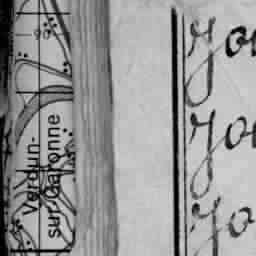 Verdun-
sur-Garonne
90
Jo
Jo
Jo